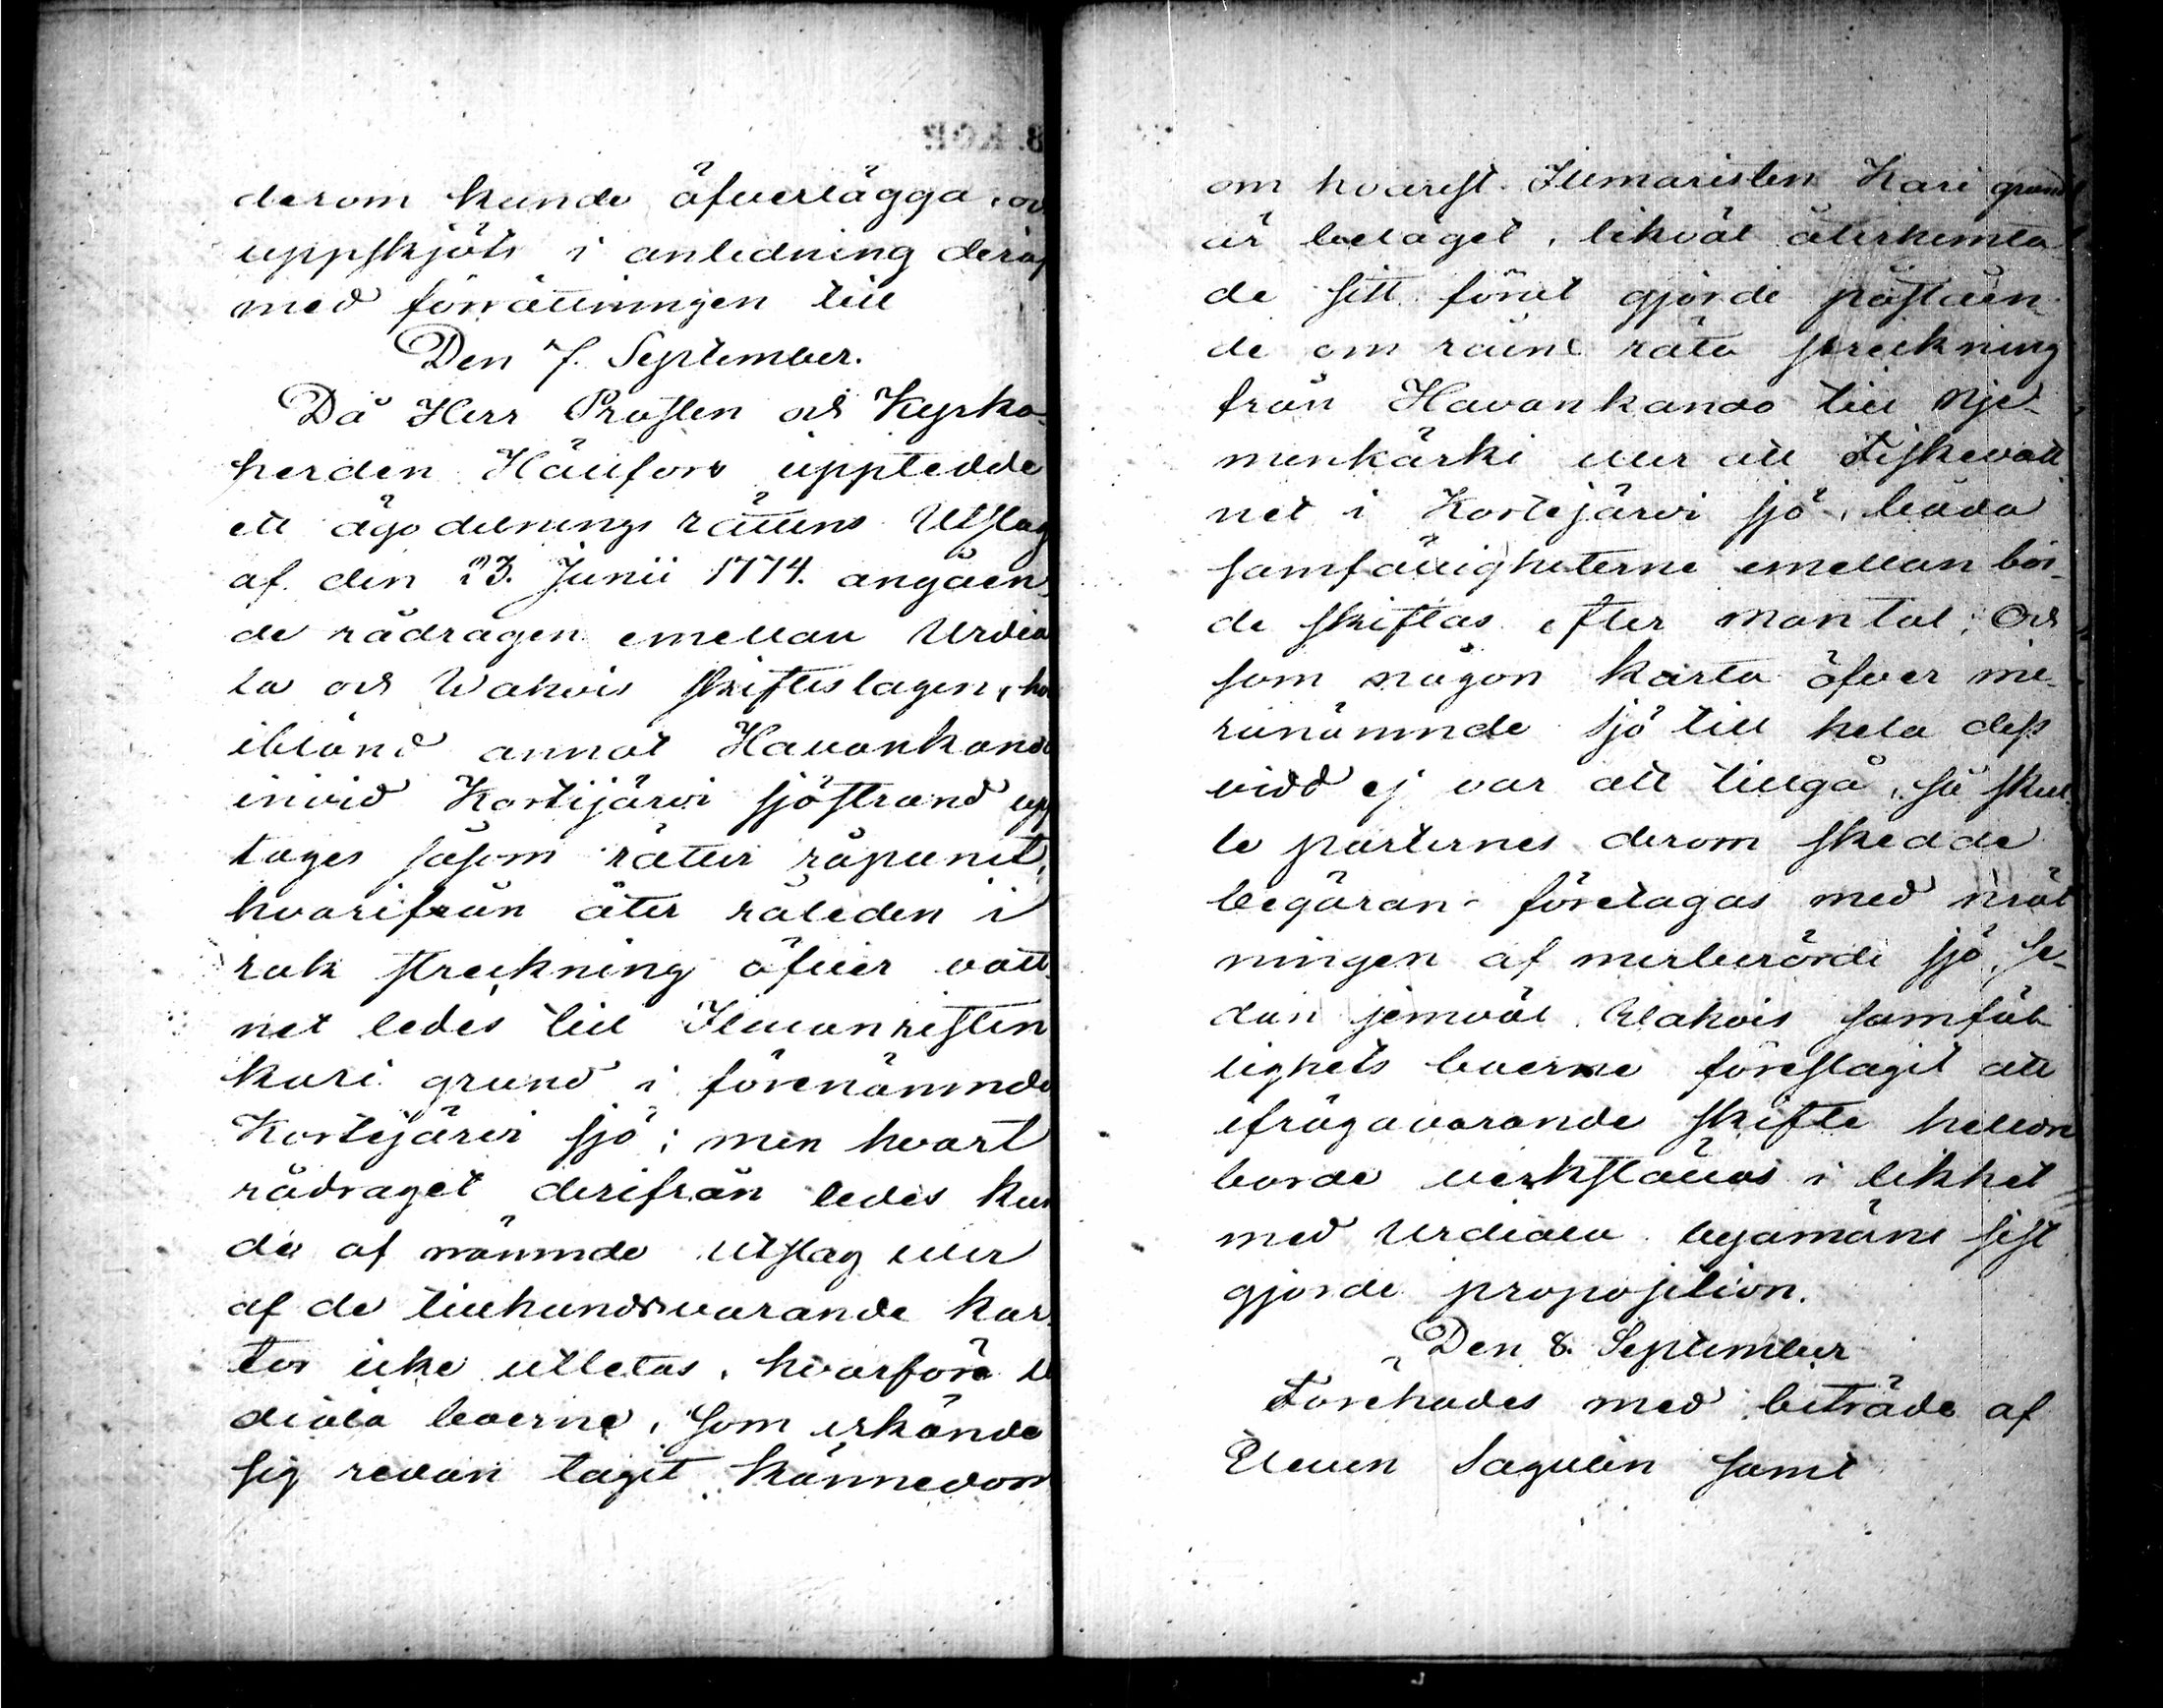 derom kunde öfverlägga, och
uppskjöts i anledning deraf
med förrättningen till
Den 7. September.
Då Herr Prosten och Kyrko-
herden Hällfors upptedde
ett ägodelnings rättens Utslag
af den 23. Junii 1774. angåen-
de rådragen emellan Urdia
la och Wahois skifteslagen,
ibland annat Havankando
invid Kortejärvi sjöstrand upp
tages såsom rätter råpunct,
hvarifrån åter råleden i
rak streckning öfver vatt-
net ledes till Ilmanristin
kari grund i förenämnde
Kortejärvi sjö; men hvart
rådraget derifrån ledes kun
de af nämnde Utslag eller
af de tillhandsvarande kar-
tor icke utletas, hvarföre Ur
diala boerne, som erkände
sig redan tagit kännedom
om hvarest Ilmaristen Kari grund
är belägit, likväl återhemta
de sitt förut gjorde påståen-
de om räine räta streckning
från Havankando till Nje-
menkärki eller att Fiskevatt
net i Kortejärvi sjö, båda
samfälligheterne emellan bör-
de skiftas efter mantal; Och
som någon karta öfver me-
ranämnde sjö till hela dess
vidd ej var att tillgå, så skul-
le parternes derom skedde
begäran företagas med
ningen af merberörde sjö, se-
dan jemväl Wahois samfäl
lighets boerne föreslagit att
ifrågavarande skifte hellre
borde verkställas i likhet
med Urdiala byamäns sist
gjorde proposition.
Den 8. September
Förehades med biträde af
Eleven Sagulin samt